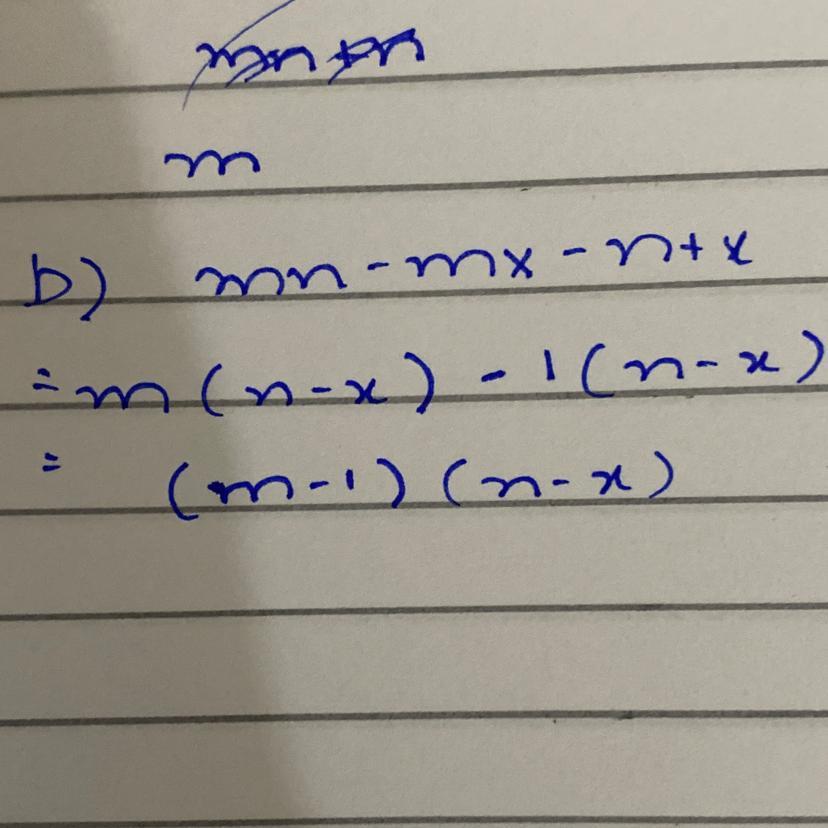 mn+n
m
b) mn-mx-n+x
=m(n-x)-1(n-x)
= (m-1)(n-x)